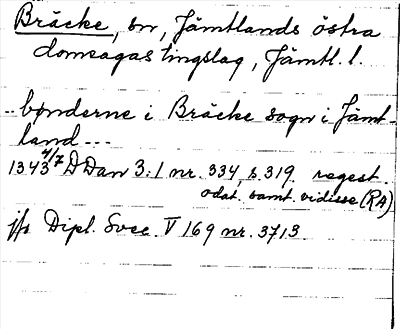 Bräcke, sn, Jämtlands östra
domsagas tingslag, Jämtl. l.
.. bønderne i Bräcke sogn i Jämt-
land ---
1343 4/7 DDan 3:1 nr. 334, s. 319. regest.
odat. samt. vidisse (RA)
jfr Dipl. Svec. V 169 nr. 3713